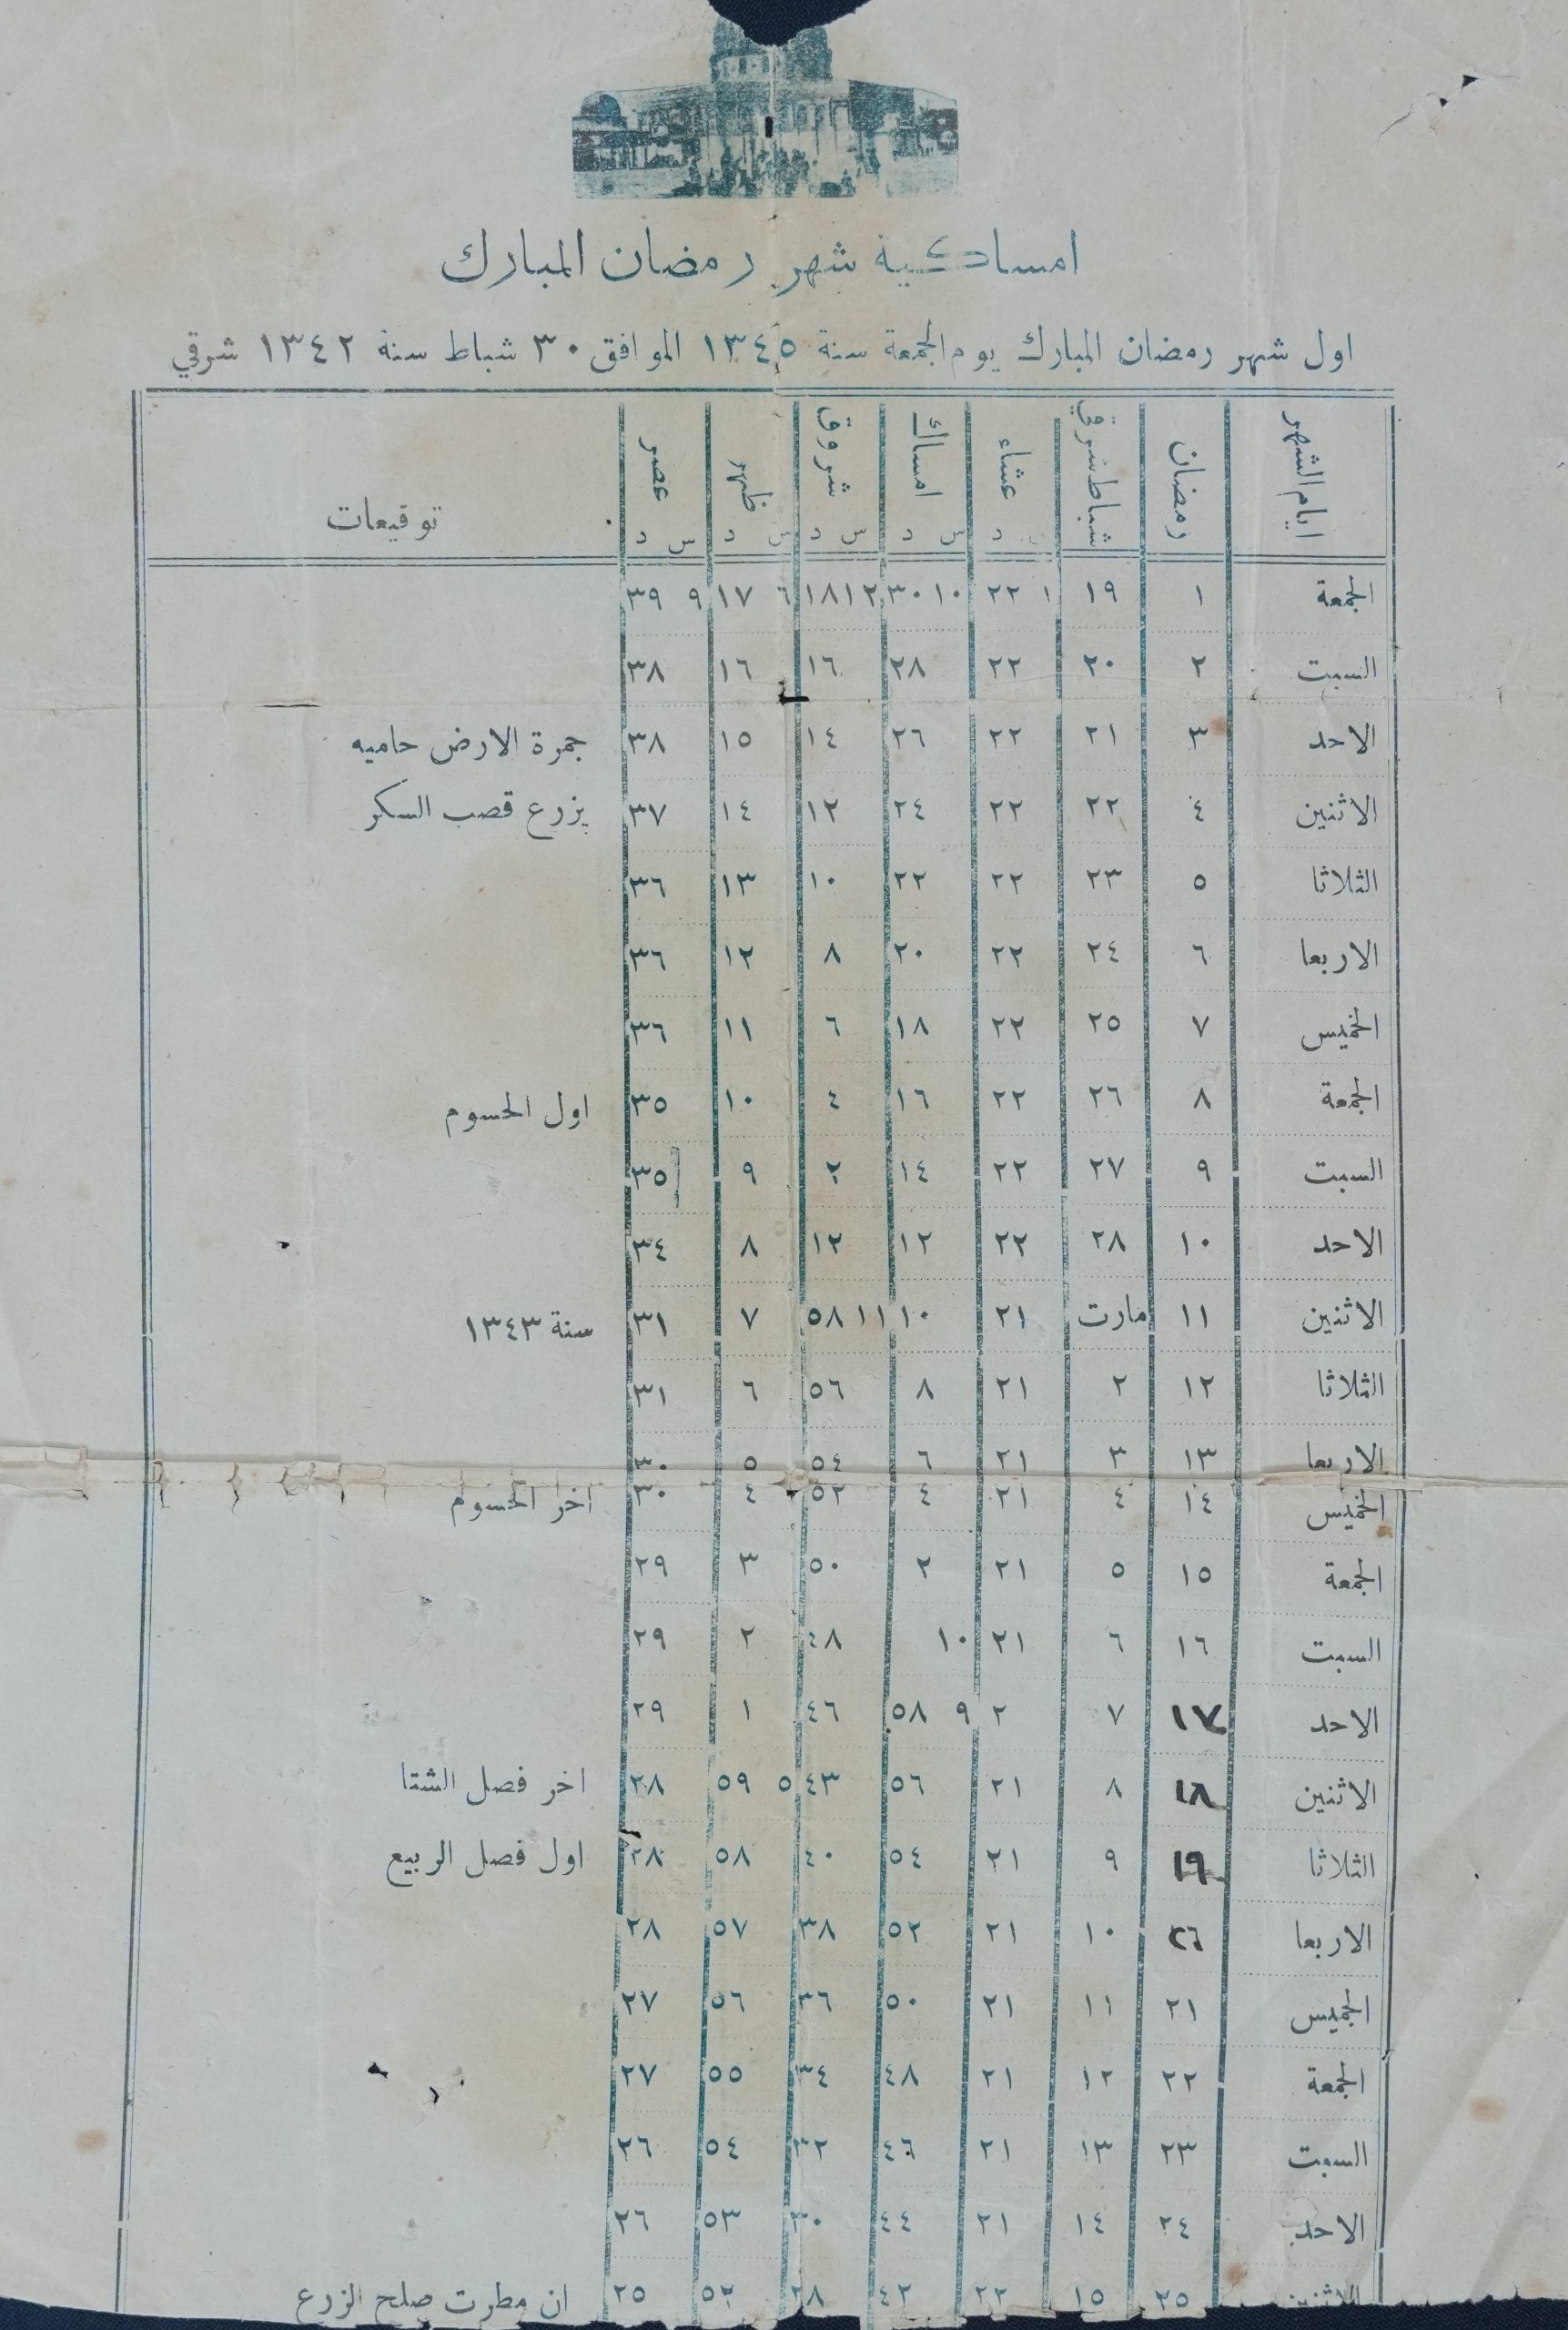 امساكية شهر رمضان المبارك
اول شهر رمضان المبارك يوم الجمعة سنة ١٣٤٥ الموافق ٣٠ شباط سنة ١٣٤٢ شرقي
ايام الشهر رمضان شباط شرقي عشاء امساك شروق ظهر عصر توقيعات
س د س د س د س د س د
الجمعة ١ ١٩ ١ ٢٢ ١٠ ٣٠ ١٢ ١٨ ٦ ١٧ ٩ ٣٩
السبت ٢ ٢٠ ٢٢ ٢٨ ١٦ ١٦ ٣٨
الاحد ٣ ٢١ ٢٢ ٢٦ ١٤ ١٥ ٣٨ جمرة الارض حاميه
الاثنين ٤ ٢٢ ٢٢ ٢٤ ١٢ ١٤ ٣٧ يزرع قصب السكر
الثلاثا ٥ ٢٣ ٢٢ ٢٢ ١٠ ١٣ ٣٦
الاربعا ٦ ٢٤ ٢٢ ٢٠ ٨ ١٢ ٣٦
الخميس ٧ ٢٥ ٢٢ ١٨ ٦ ١١ ٣٦
الجمعة ٨ ٢٦ ٢٢ ١٦ ٤ ١٠ ٣٥ اول الحسوم
السبت ٩ ٢٧ ٢٢ ١٤ ٢ ٩ ٣٥
الاحد ١٠ ٢٨ ٢٢ ١٢ ١٢ ٨ ٣٤
الاثنين ١١ مارت ٢١ ١٠ ١١ ٥٨ ٧ ٣١ سنة ١٣٤٣
الثلاثا ١٢ ٢ ٢١ ٨ ٥٦ ٦ ٣١
الاربعا ١٣ ٣ ٢١ ٦ ٥٤ ٥ ٣٠
الخميس ١٤ ٤ ٢١ ٤ ٥٢ ٤ ٣٠ اخر الحسوم
الجمعة ١٥ ٥ ٢١ ٢ ٥٠ ٣ ٢٩
السبت ١٦ ٦ ٢١ ١٠ ٤٨ ٢ ٢٩
الاحد ١٧ ٧ ٢ ٩ ٥٨ ٤٦ ١ ٢٩
الاثنين ١٨ ٨ ٢١ ٥٦ ٤٣ ٥ ٥٩ ٢٨ اخر فصل الشتا
الثلاثا ١٩ ٩ ٢١ ٥٤ ٤٠ ٥٨ ٢٨ اول فصل الربيع
الاربعا ٢٦ ١٠ ٢١ ٥٢ ٣٨ ٥٧ ٢٨
الخميس ٢١ ١١ ٢١ ٥٠ ٣٦ ٥٦ ٢٧
الجمعة ٢٢ ١٢ ٢١ ٤٨ ٣٤ ٥٥ ٢٧
السبت ٢٣ ١٣ ٢١ ٤٦ ٣٢ ٥٤ ٢٦
الاحد ٢٤ ١٤ ٢١ ٤٤ ٣٠ ٥٣ ٢٦
الاثنين ٢٥ ١٥ ٢٢ ٤٢ ٢٨ ٥٢ ٢٥ ان مطرت صلح الزرع